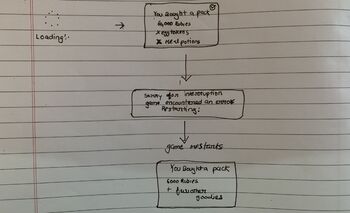 Loading!.
You Bought a pack
6,000 Rubies
x eggtokens
x Heal potions
Sorry for interruption
game encountered an error
Restarting!
game restarts
You Bought a pack
6000 Rubies
+ few other
goodies